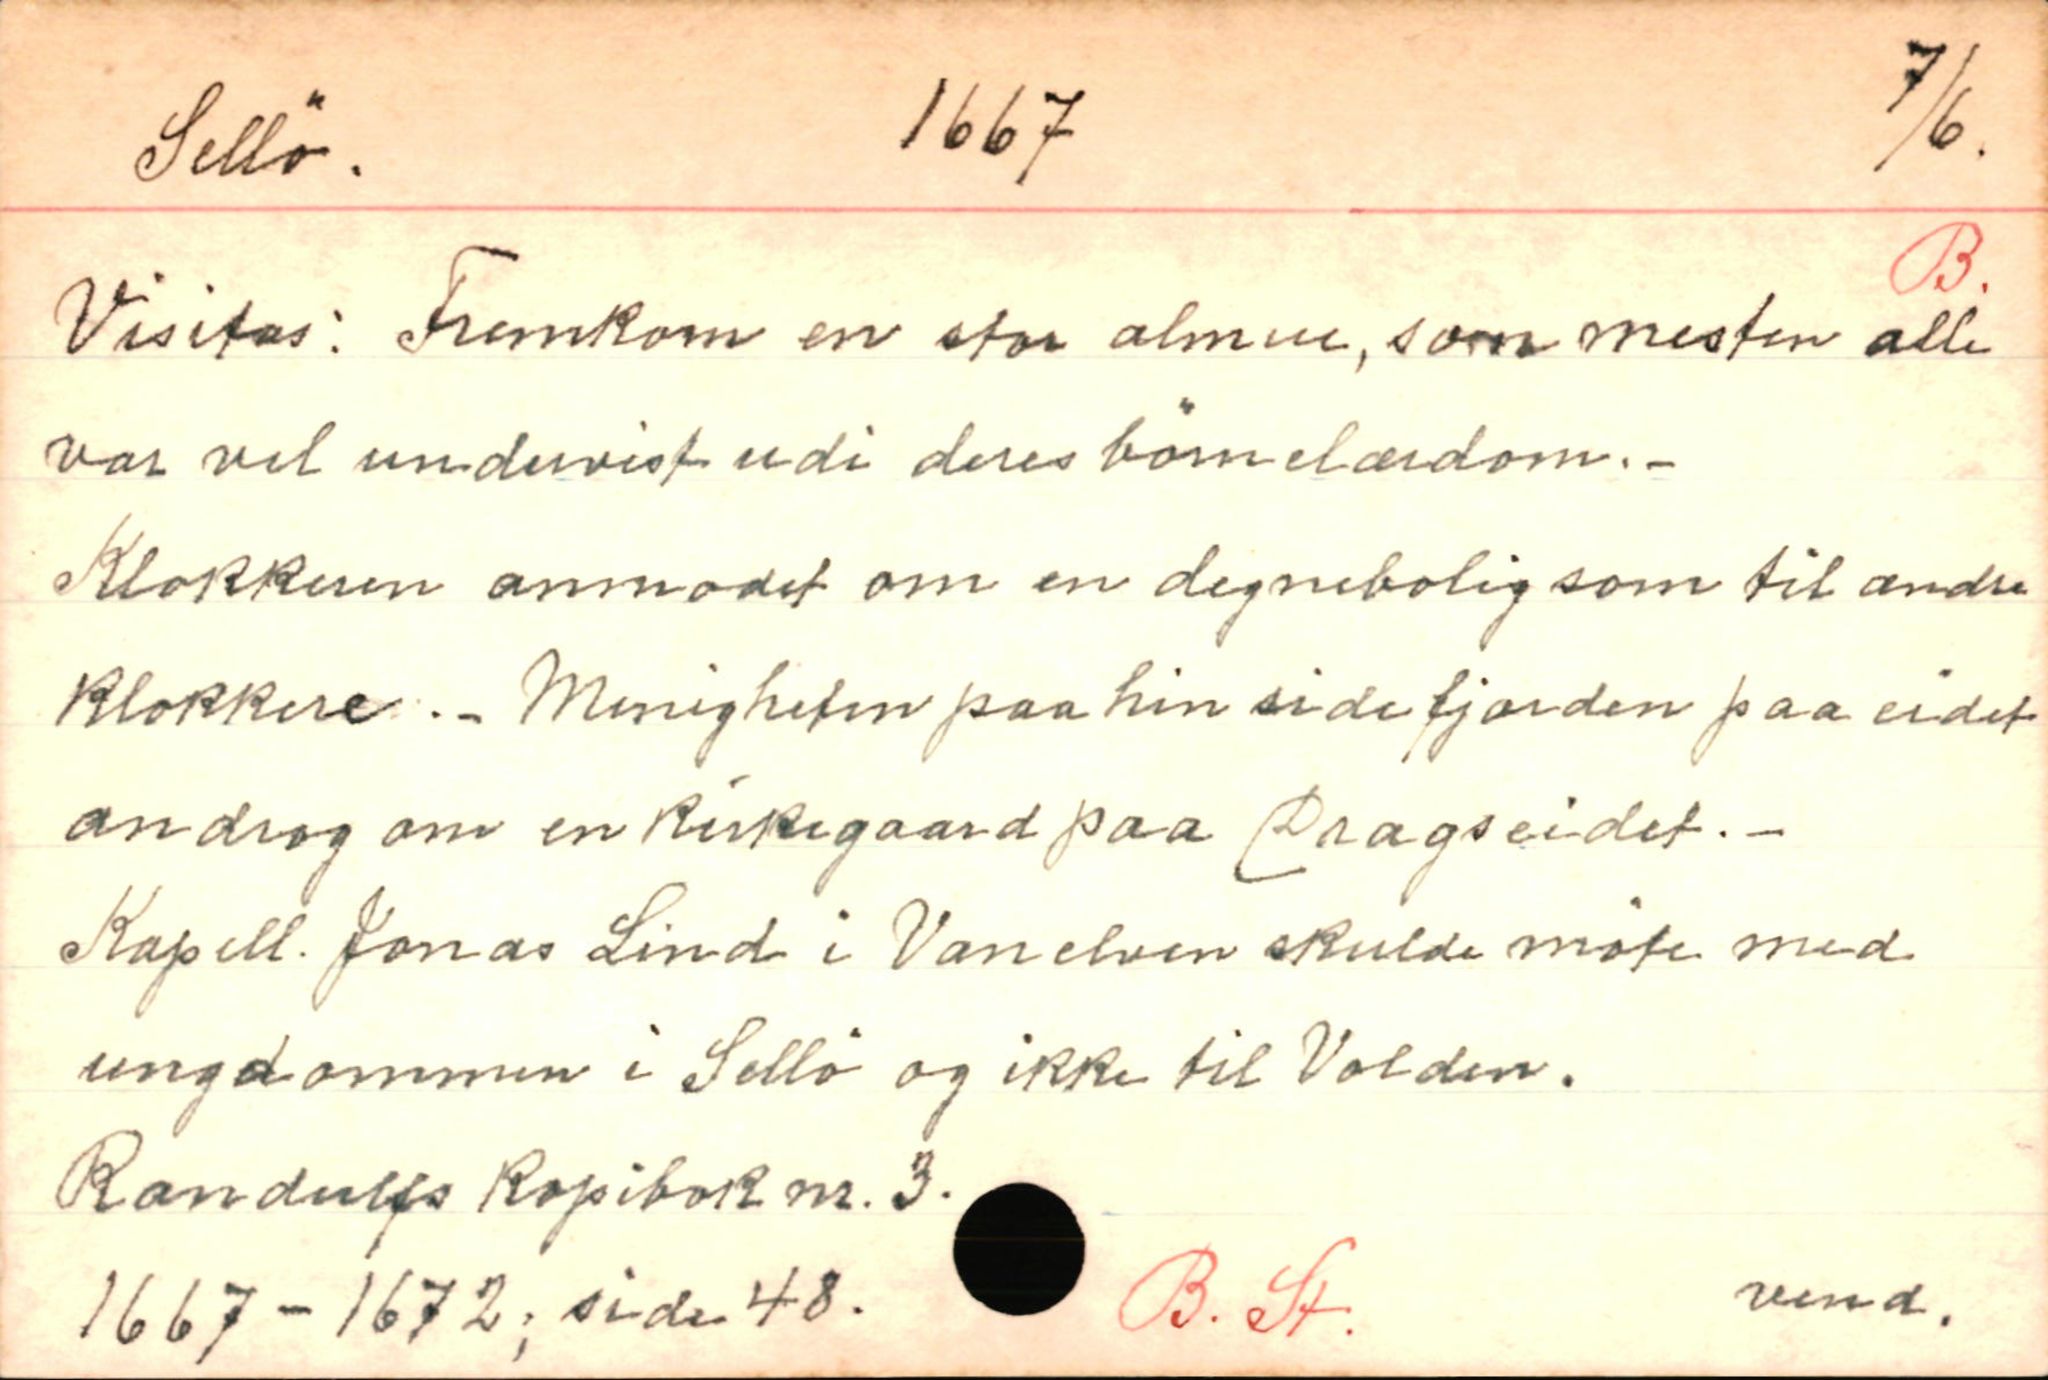 Sellö. 1667 7/6.
B.
Visitas: Fremkom en stor almue, som mesten alle
var vel undervist udi deres börnelærdom.-
Klokkeren anmodet om en degnebolig som til andre
klokkere.- Menigheten paa hin side fjorden paa eidet
androg om en kirkegaard paa Dragseidet.-
Kapell. Jonas Lind i Vanelven skulde möte med
ungdommen i Sellö og ikke til Volden.
Randulfs kopibok nr. 3.
1667-1672; side 48. B. St. vend.